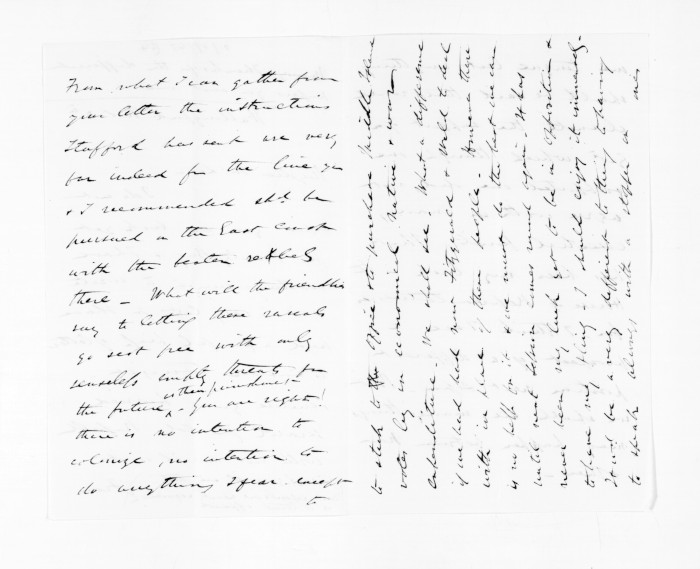 From what I can gather from
your letter the instructions
Stafford has sent are very
far indeed from the line you
& I recommended shd be
pursued on the East Coast
with the beaten rebels
there – What will the friendlies
say to letting these rascals
go scot free with only
senseless empty threats for
as their punishment
the future – You are right!
there is no intention to
colonize, no intention to
do anything I fear except
to
to stick to office &
purchase Middle Island
votes by uneconomical Native & war
expenditure. We shall see. What a difference
if we had had new Fitzgerald & Weld to deal
with in place of these people – However there
is no help for it & we must do the best we can
until next session comes round again. It has
never been my luck yet to be in opposition &
to have my fling – I should enjoy it immensely –
It wd be a very different thing to having
to speak always with a